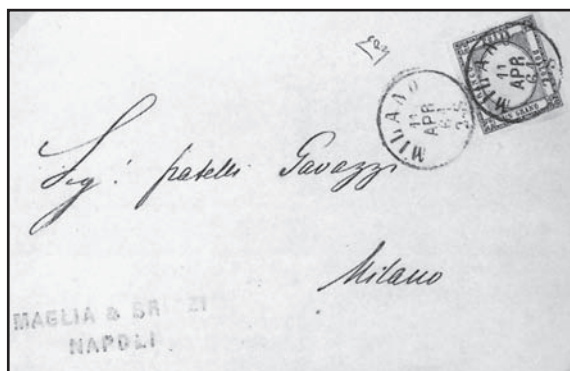 MILANO
11
APR
61
3-S
MILANO
11
APR
61
UN GRANO
Sig.i fratelli Gavazzi
Milano
MAGLIA & BR ZI
NAPOLI